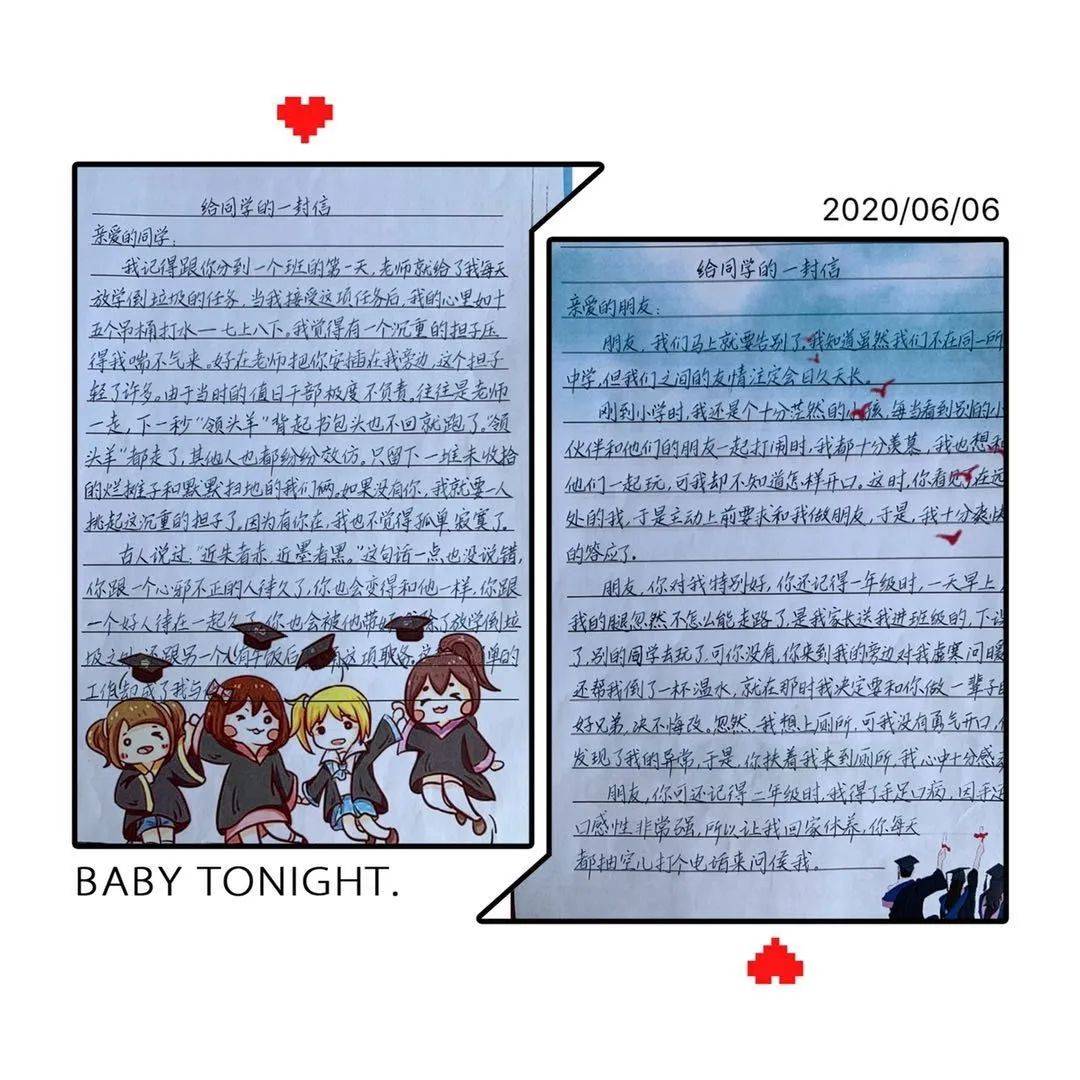 给同学的一封信
亲爱的同学:
我记得跟你分到一个班的第一天,老师就给了我每天
放学倒垃圾的任务,当我接受这项任务后,我的心里如十
五个吊桶打水一七上八下。我觉得有一个沉重的担子压
得我喘不气来。好在老师把你安插在我旁边,这个担子
轻了许多。由于当时的值日干部极度不负责,往往是老师
一走,下一秒“领头羊”背起书包头也不回就跑了,“领
头羊”都走了,其他人也都纷纷效仿。只留下一堆未收拾
的烂摊子和默默扫地的我们俩,如果没有你,我就要一人
挑起这沉重的担子了,因为有你在,我也不觉得孤单寂寞了。
古人说过:“近朱者赤,近墨者黑。”这句话一点也没说错,
你跟一个心邪不正的人待久了,你也会变得和他一样,你跟
一个好人待在一起久了,你也会被他带 了放学倒垃
圾之 跟另一个 有午饭后 这项职务 单的
工作却成了我与
BABY TONIGHT.
2020/06/06
给同学的一封信
亲爱的朋友:
朋友,我们马上就要告别了,我知道虽然我们不在同一所
中学,但我们之间的友情注定会日久天长。
刚到小学时,我还是个十分茫然的小孩,每当看到别的小
伙伴和他们的朋友一起打闹时,我都十分羡慕,我也想和
他们一起玩,可我却不知道怎样开口。这时,你看见了在远
处的我,于是主动上前要求和我做朋友,于是,我十分爽快
的答应了。
朋友,你对我特别好,你还记得一年级时,一天早上,
我的腿忽然不怎么能走路了,是我家长送我进班级的,下课
了,别的同学去玩了,可你没有,你来到我的旁边对我虚寒问暖
还帮我倒了一杯温水,就在那时我决定要和你做一辈子的
好兄弟,决不悔改。忽然,我想上厕所,可我没有勇气开口,你
发现了我的异常,于是,你扶着我来到厕所,我心中十分感
朋友,你可还记得二年级时,我得了手足口病,因手足
口感性非常强,所以让我回家休养,你每天
都抽空儿打个电话来问侯我。